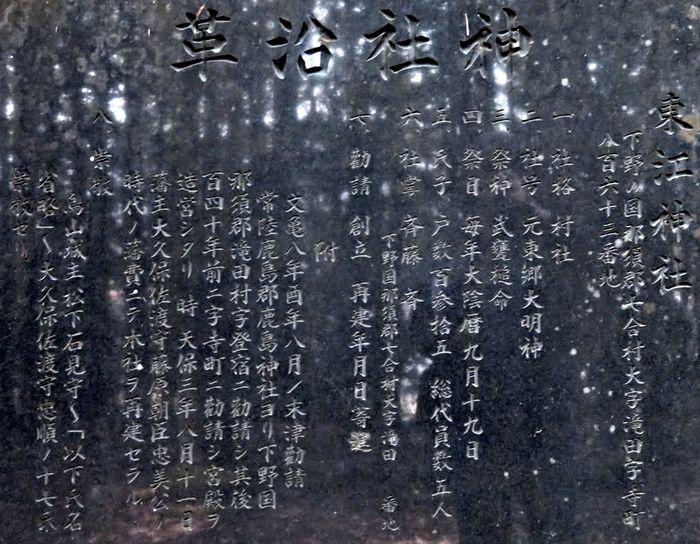 神社沿革
東江神社
下野ノ国那須郡七合村大字滝田字寺町
八百六十三番地
一 社格 村社
二 社号 元東郷大明神
三 祭神 武甕槌命
四 祭日 毎年大陰暦九月十九日
五 氏子 戸数百参拾五 総代員数五人
六 社掌 斉藤 斉
下野国那須郡七合村大字滝田 番地
七 勧請 創立 再建年月日寄選
附
文亀八年酉年八月ノ末津勧請
常陸鹿島郡鹿島神社ヨリ下野国
那須郡滝田村字登宿ニ勧請シ其後
百四十年前ニ字寺町ニ勧請シ宮殿ヲ
造宮シタリ 時 天保三年八月十一日
藩主大久保佐渡守藤原朝臣忠美公ノ
時代ノ藩費ニテ本社ヲ再建セラル
八 崇敬
烏山城主松下石見守〜「以下氏名
省略」〜大久保佐渡守忠順ノ十七氏
崇敬セリ